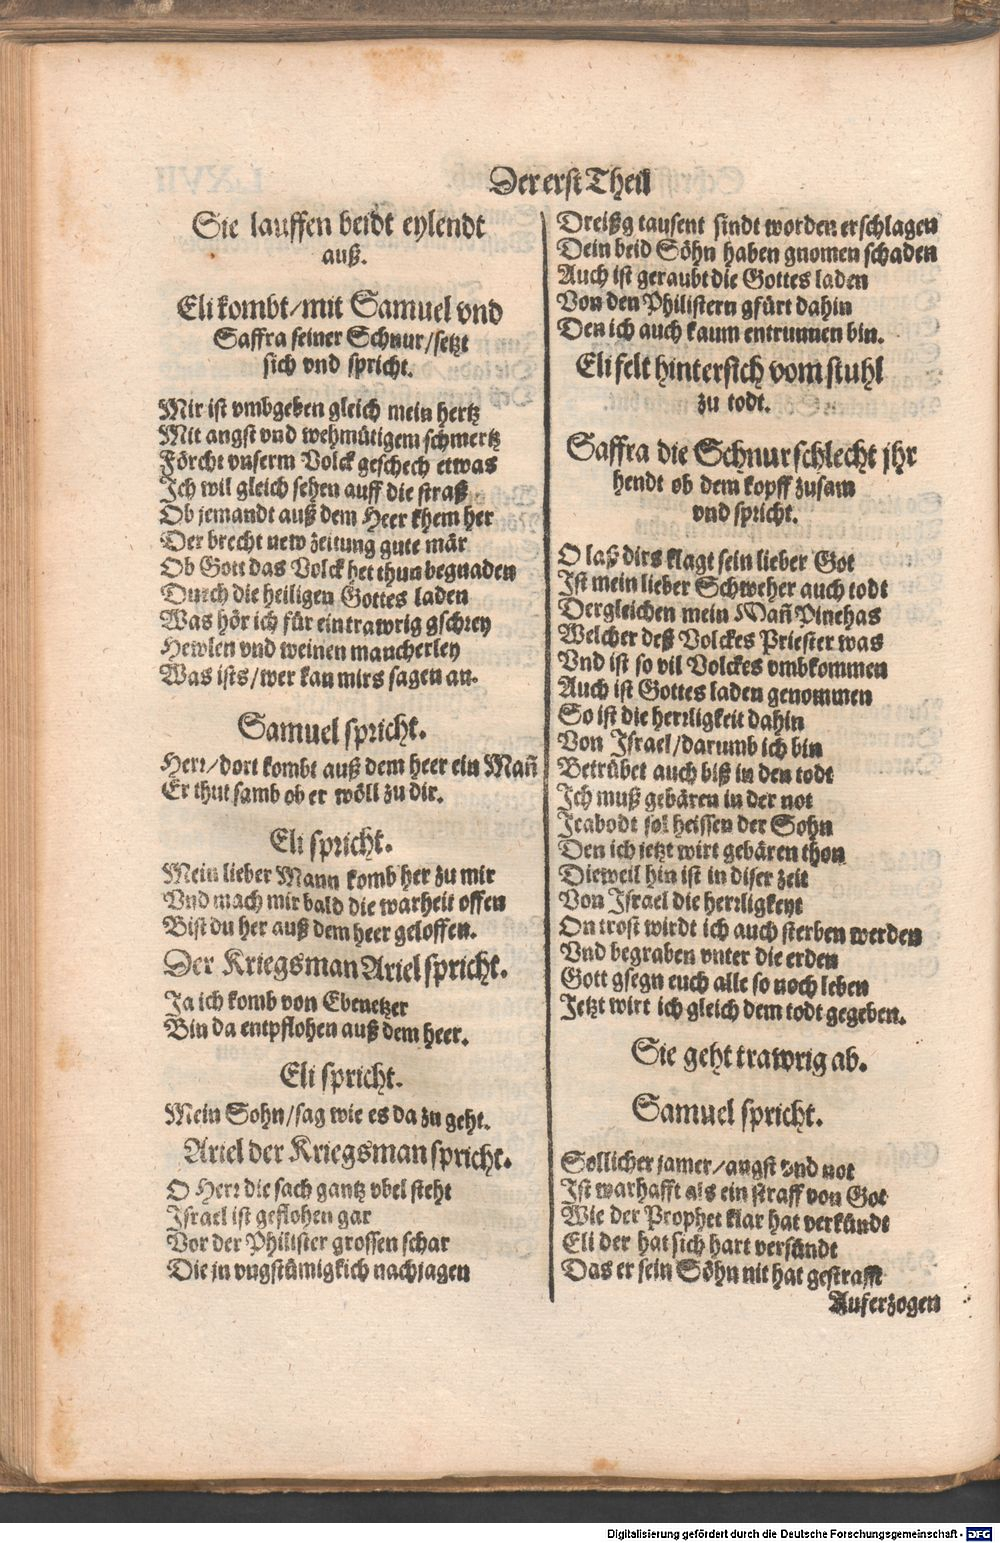 Der erst Theil
Sie lauffen beidt eylendt
auß.
Eli kombt/mit Samuel vnd
Saffra seiner Schnur/setzt
sich vnd spricht.
Mir ist vmbgeben gleich mein hertz
Mit angst vnd wehmütigem schmertz
Förcht vnserm Volck geschech etwas
Ich wil gleich sehen auff die straß
Ob jemandt auß dem Heer khem her
Der brecht new zeitung gute mär
Ob Gott das Volck het thun begnaden
Durch die heiligen Gottes laden
Was hör ich für ein trawrig gschrey
Hewlen vnd weinen mancherley
Was ists/wer kan mirs sagen an.
Samuel spricht.
Herr/dort kombt auß dem heer ein Mañ
Er thut samb ob er wöll zu dir.
Eli spricht.
Mein lieber Mann komb her zu mir
Vnd mach mir bald die warheit offen
Bist du her auß dem heer geloffen.
Der Kriegsman Ariel spricht.
Ja ich komb von Ebenetzer
Bin da entpflohen auß dem heer.
Eli spricht.
Mein Sohn/sag wie es da zu geht.
Ariel der Kriegsman spricht.
O Herr die sach gantz vbel steht
Israel ist geflohen gar
Vor der Philister grossen schar
Die jn vngstümigkich nachjagen
Dreißg tausent sindt worden erschlagen
Dein beid Söhn haben gnomen schaden
Auch ist geraubt die Gottes laden
Von den Philistern gfürt dahin
Den ich auch kaum entrunnen bin.
Eli felt hintersich vom stuhl
zu todt.
Saffra die Schnur schlecht jhr
hendt ob dem kopff zusam
vnd spricht.
O laß dirs klagt sein lieber Got
Ist mein lieber Schweher auch todt
Dergleichen mein Mañ Pinehas
Welcher deß Volckes Priester was
Vnd ist so vil Volckes vmbkommen
Auch ist Gottes laden genommen
So ist die herrligkeit dahin
Von Israel/darumb ich bin
Betrübet auch biß in den todt
Ich muß gebären in der not
Icabodt sol heissen der Sohn
Den ich jetzt wirt gebären thon
Dieweil hin ist in diser zeit
Von Israel die herrligkeyt
On trost wirdt ich auch sterben werden
Vnd begraben vnter die erden
Gott gsegn euch alle so noch leben
Jetzt wirt ich gleich dem todt gegeben.
Sie geht trawrig ab.
Samuel spricht.
Sollicher jamer/angst vnd not
Ist warhafft als ein straff von Got
Wie der Prophet klar hat verkündt
Eli der hat sich hart versündt
Das er sein Söhn nit hat gestrafft
Auferzogen
Digitalisierung gefördert durch die Deutsche Forschungsgemeinschaft - DFG